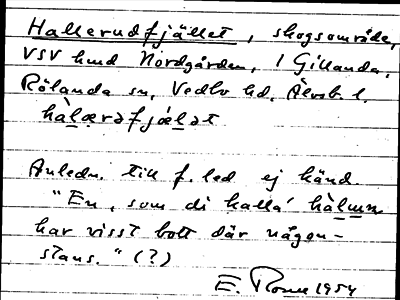 Hallerudfjället, skogsområde,
VSV hmd Nordgården, 1 Gillanda,
Rölanda sn, Vedbo hd, Älvsb. l.
hàlærəfjæ̀lət
Anledn. till f. led ej känd.
"En, som di kalla' hàlmn
har visst bott där någon-
stans." (?)
E. 1954